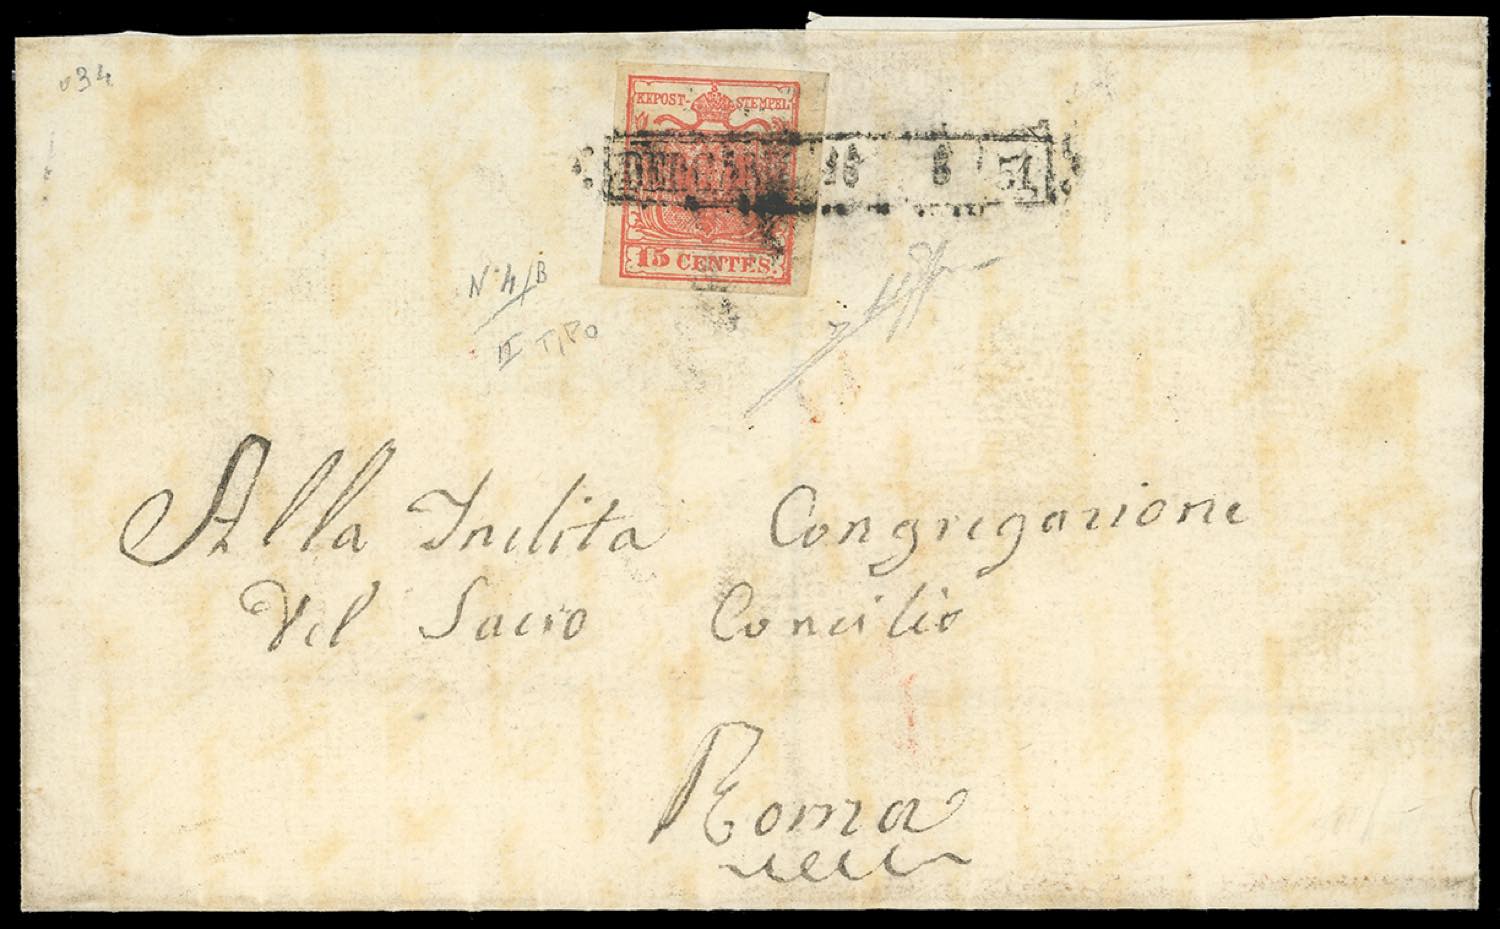 034
KKPOST-STEMPEL
BERGAMO 18 8 51
15 CENTES.
N. 4/B
II TIPO
Alla Inclita Congregazione
Del Sacro Concilio
Roma